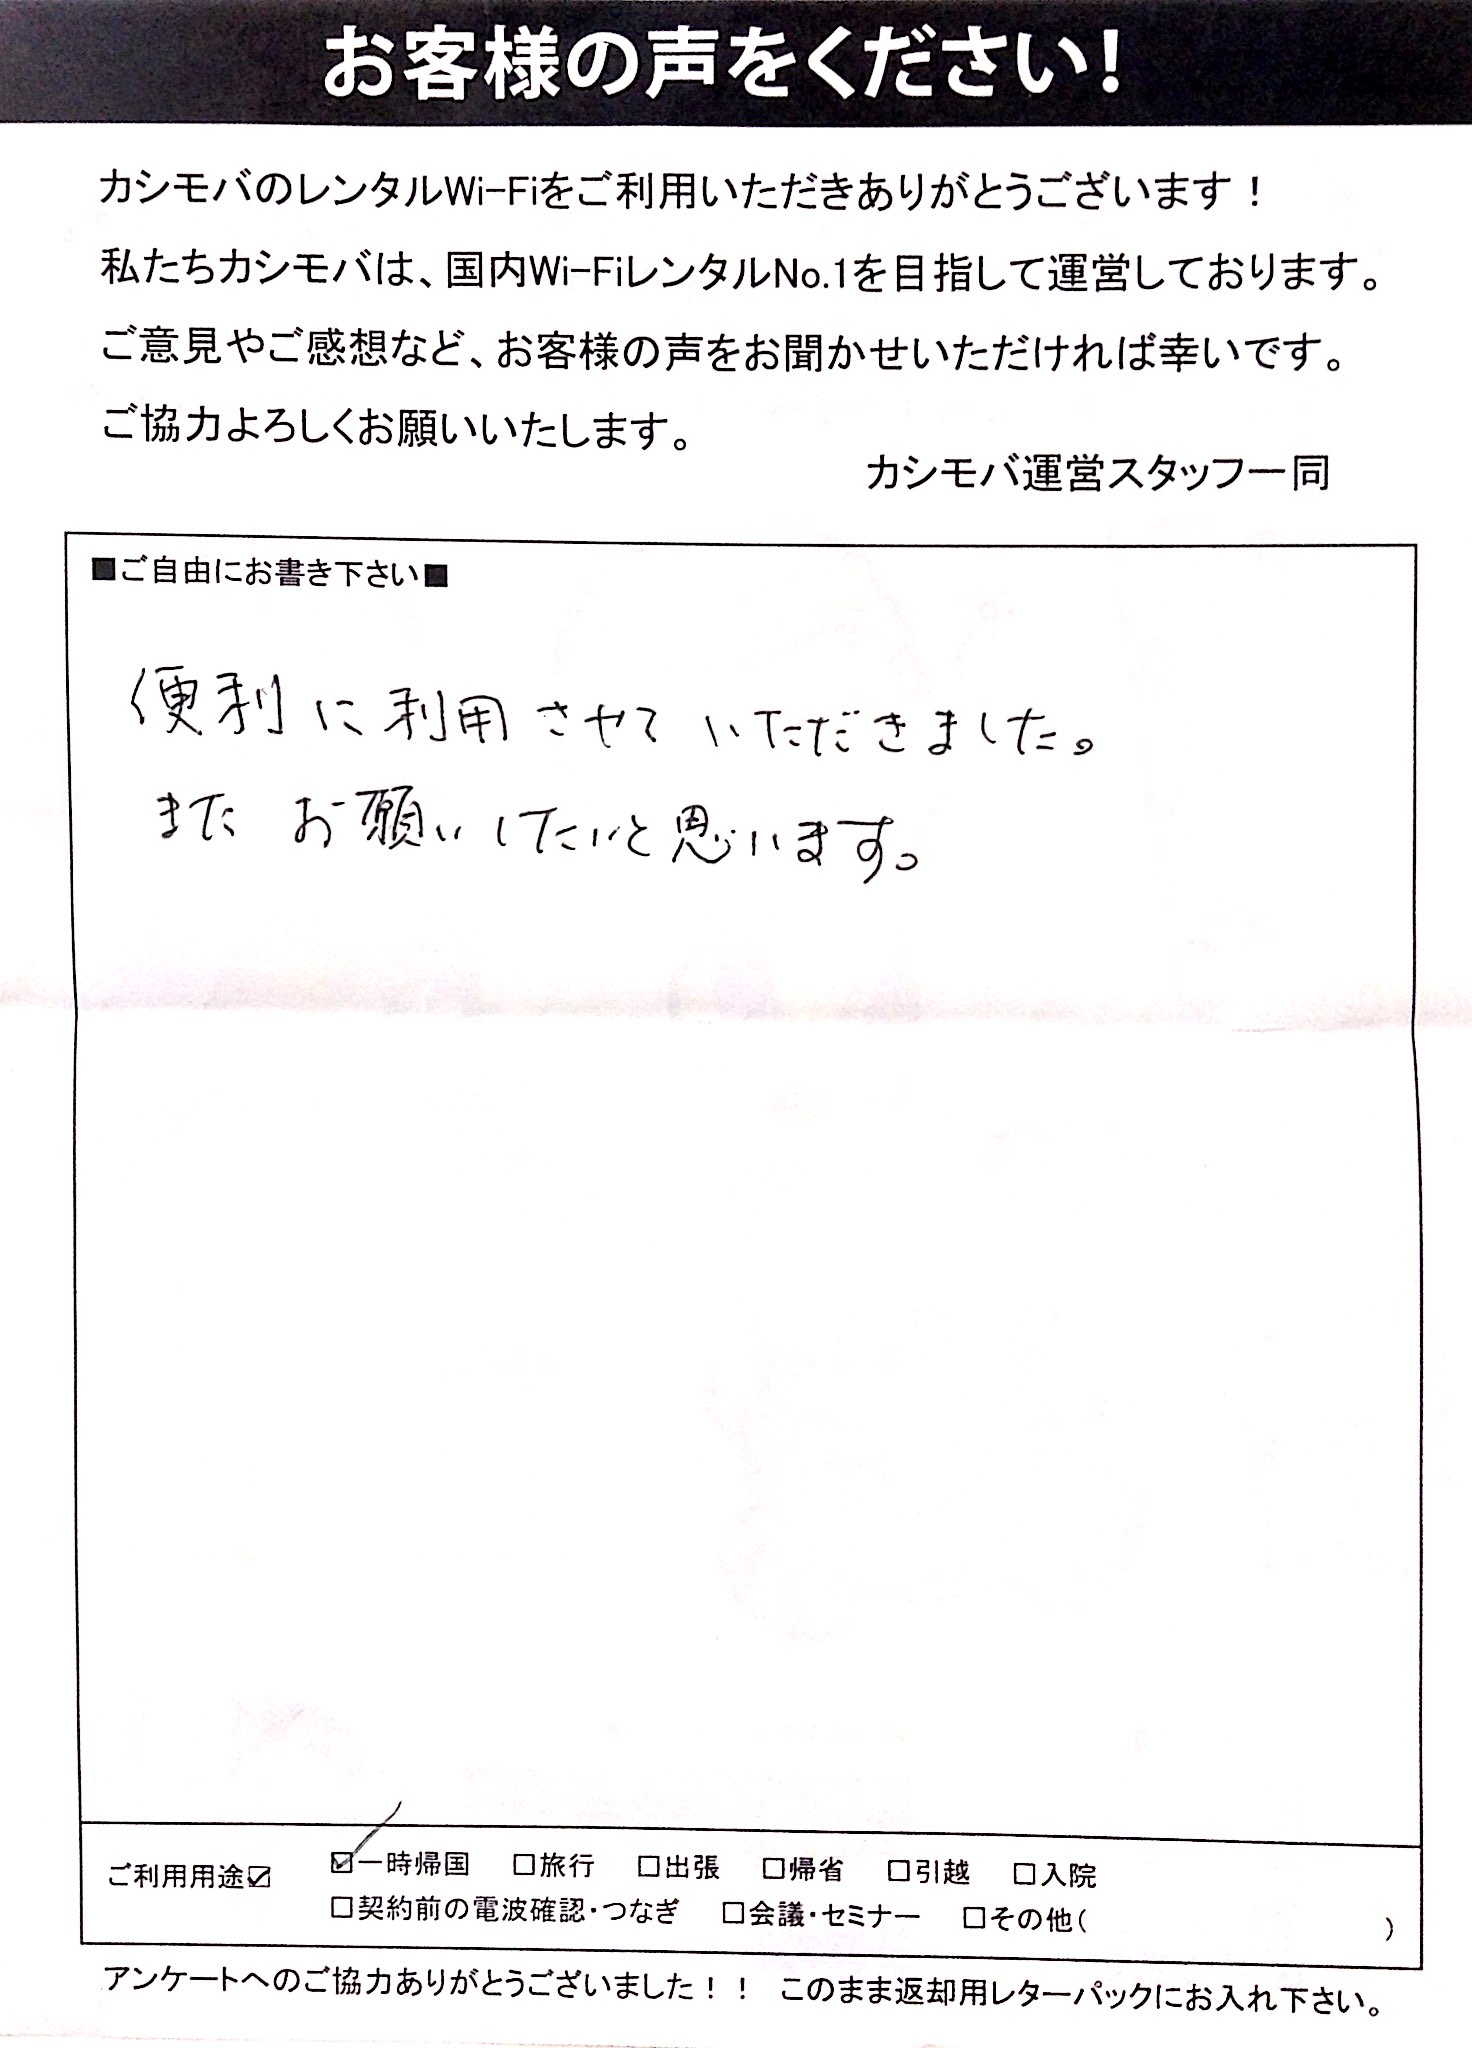 お客様の声をください!
カシモバのレンタルWi-Fiをご利用いただきありがとうございます！
私たちカシモバは、国内Wi-FiレンタルNo.1を目指して運営しております。
ご意見やご感想など、お客様の声をお聞かせいただければ幸いです。
ご協力よろしくお願いいたします。
カシモバ運営スタッフ一同
■ご自由にお書き下さい■
便利に利用させていただきました。
またお願いしたいと思います。
ご利用用途☑ ☑一時帰国 □旅行 □出張 □帰省 □引越 □入院
□契約前の電波確認・つなぎ □会議・セミナー □その他( )
アンケートへのご協力ありがとうございました！！ このまま返却用レターパックにお入れ下さい。